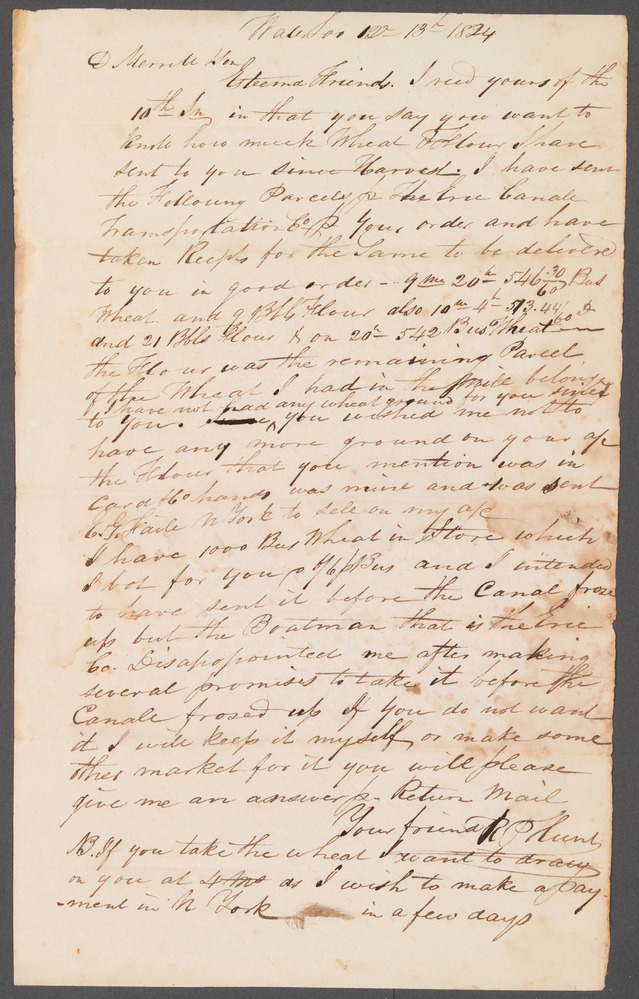 Waterloo 12th 13th 1824
D Merrill Son
Esteemd Friends. I recd yours of the
10th In, in that you say you want to
know how much Wheat & Flour I have
sent to you since Harvest. I have sent
the Following Parcels pr the Erie Canall
Transportation Co pr your order and have
taken Recpts for the Same to be deliverd
to you in good order - 9 mo 20th 546 30/60 Bus
Wheat and 9 Bbls Flour also 10 mo 4th 513.44/60 do
and 21 Bbls Flour & on 20th 542 Bus Wheat
the Flour was the remaining Parcel
of the Wheat I had in the mill belong
to you. I have not had any wheat ground for you since
you wished me not to
have any more ground on your a/c
the Flour that you mention was in
Card & Co hands was mine and was sent
E. G. Haile N York to sele on my a/c
I have 1000 Bus Wheat in Store which
I bot for you @ /6 pr Bus and I intended
to have sent it before the Canal froze
up but the Boatman that is the Erie
Co. Disapopointed me after making
several promises to take it before the
Canall frosed up If you do not want
it I will keep it myself, or make some
other market for it you will please
give me an answer pr Return Mail
Your friend R P Hunt
NB. If you take the wheat I want to draw
on you at 4 mo as I wish to make a pay-
-ment in N York in a few days